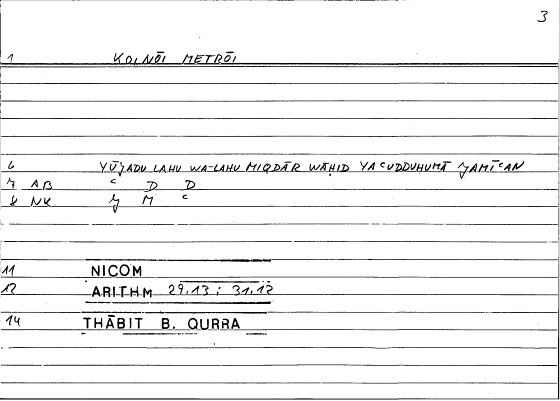 3
1 KOINŌI METRŌI
6 YŪJADU LAHU WA-LAHU MIQDĀR WĀḤID YAʿUDDUHUMĀ JAMĪʿAN
7 AB ʿ D D
8 NK J M ʿ
11 NICOM
12 ARITHM 29.13 ; 31.12
14 THĀBIT B. QURRA